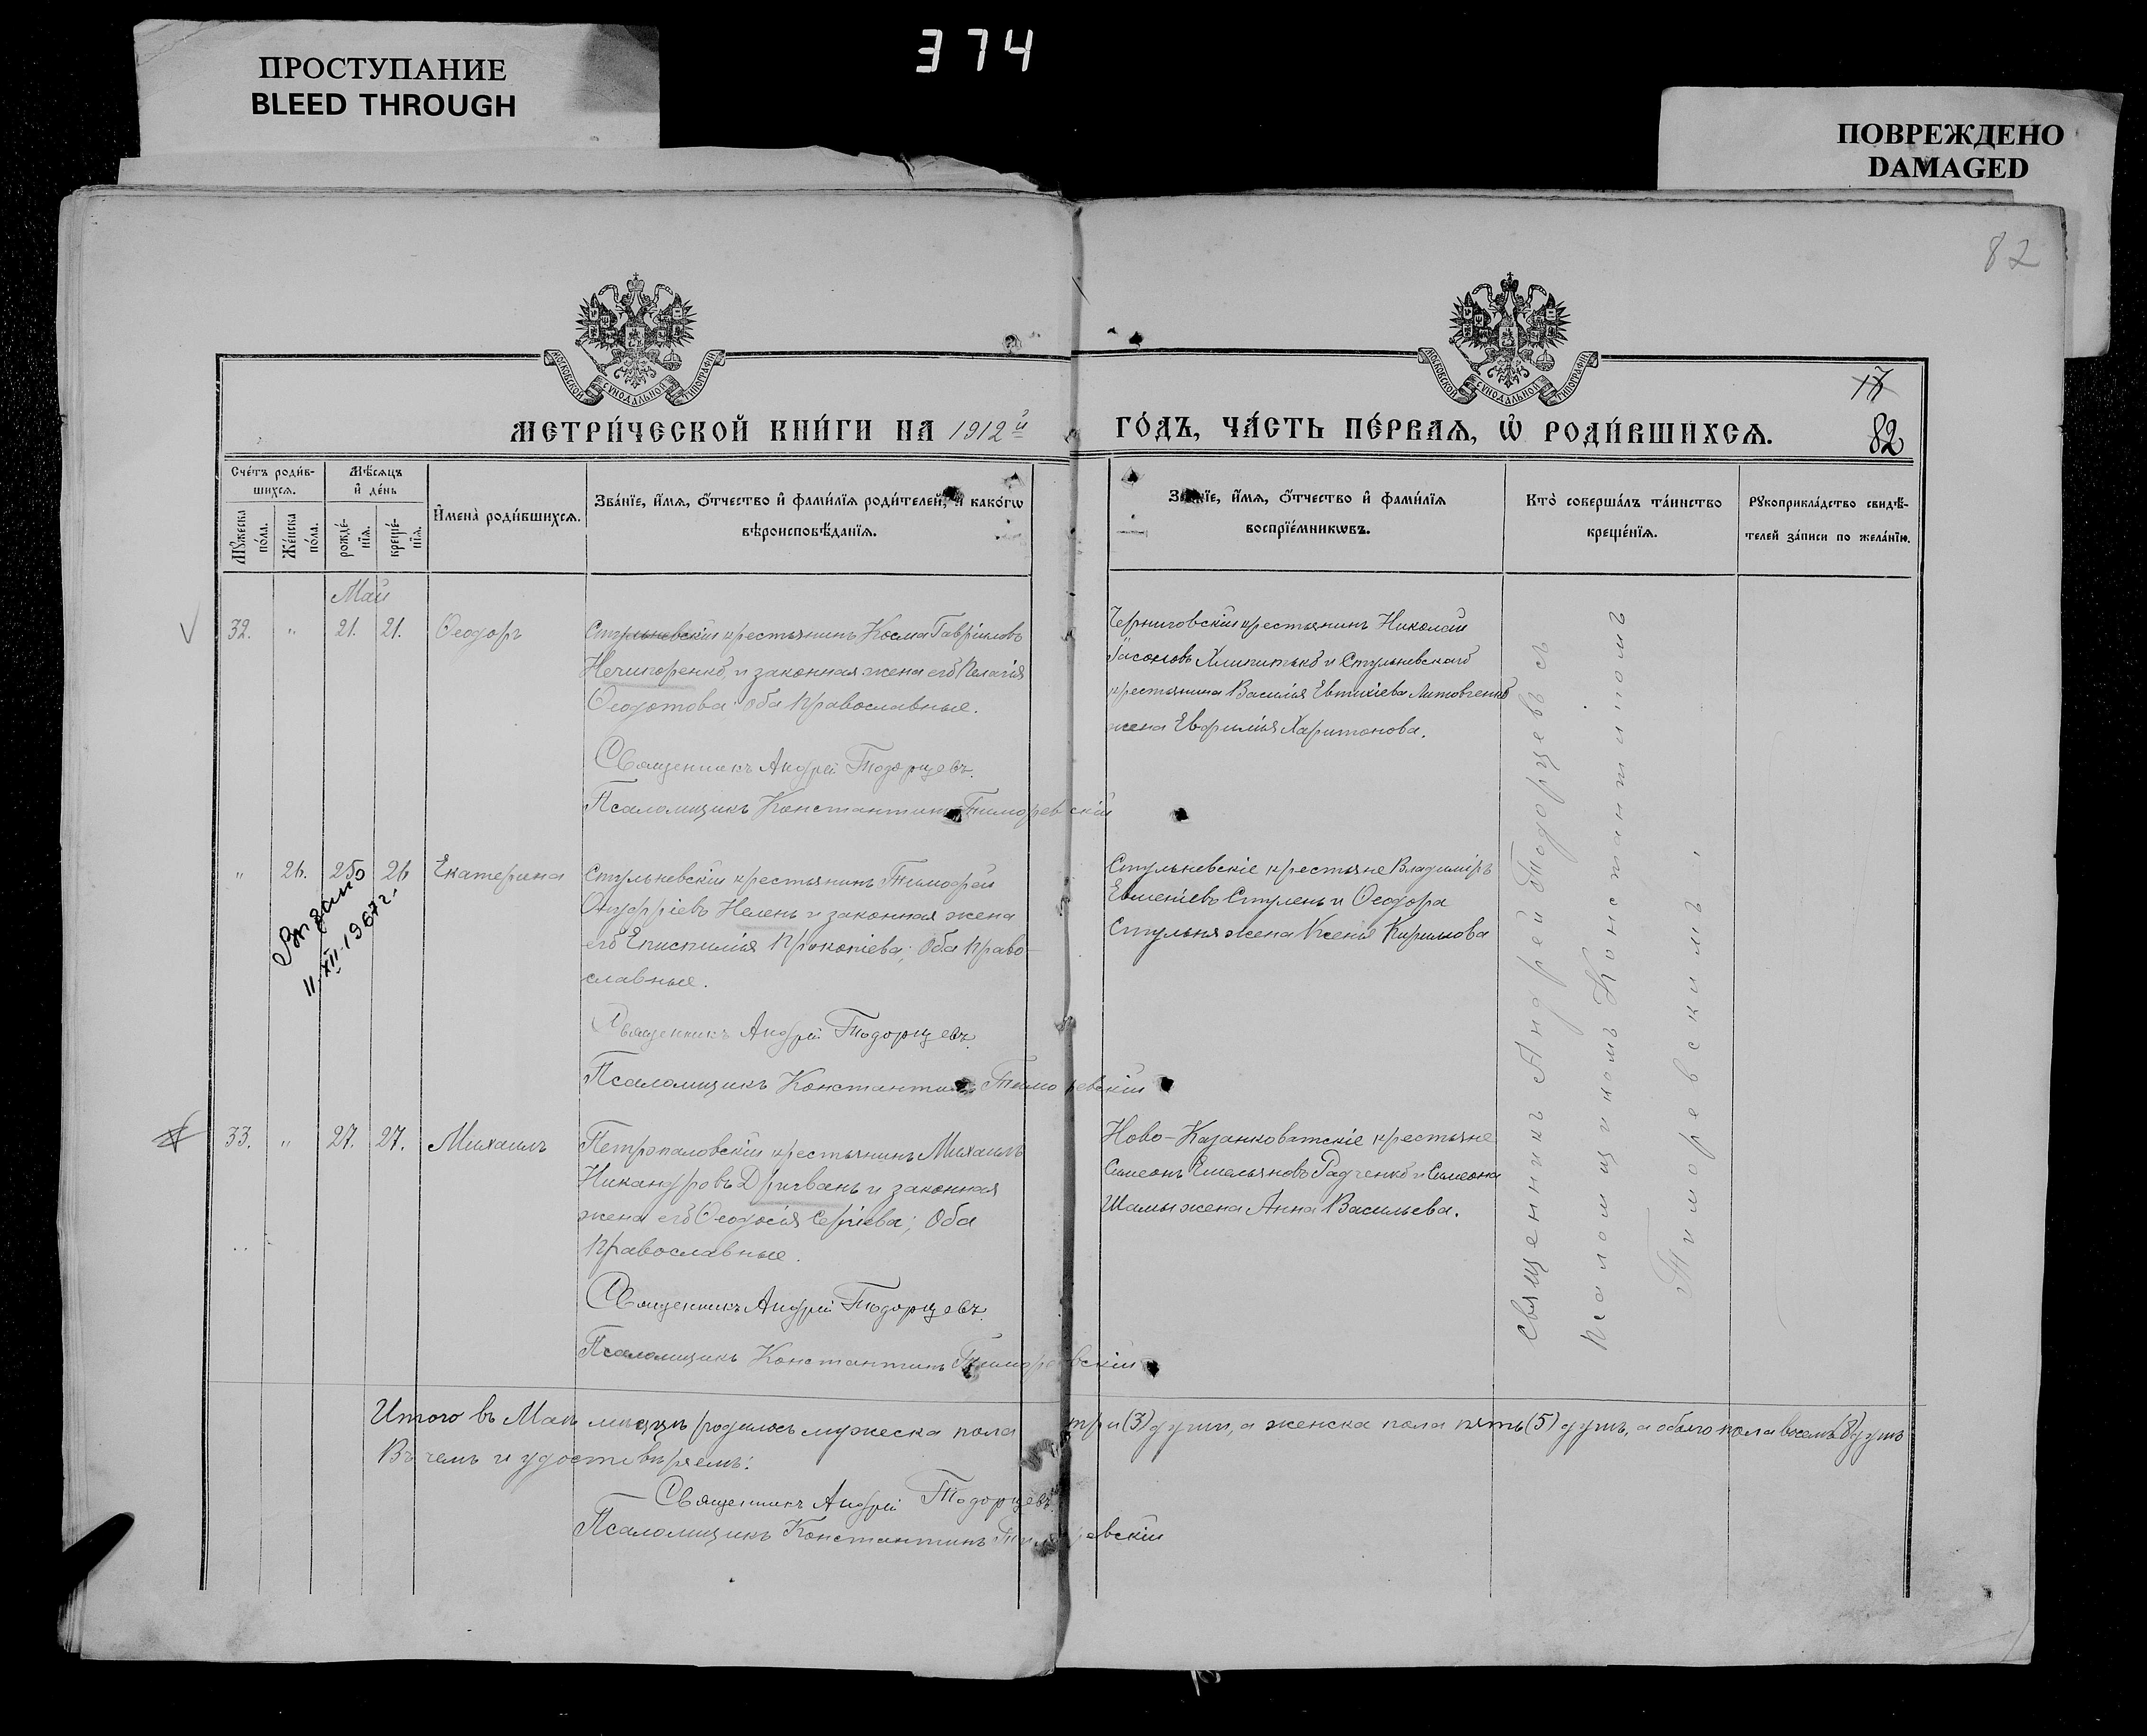 374
ПРОСТУПАНИЕ
BLEED THROUGH
ПОВРЕЖДЕНО
DAMAGED
82
МОСКОВСКОЙ СУНОДАЛЬНОЙ ТИПОГРАФІИ
МОСКОВСКОЙ СУНОДАЛЬНОЙ ТИПОГРАФІИ
МЕТРИ́ЧЕСКОЙ КНИ́ГИ НА 1912й
ГО́ДЪ, ЧА́СТЬ ПЕ́РВАѦ, Ѡ РОДИ́ВШИХСѦ.
82
Сче́тъ роди́в-
шихсѧ.
Мѣ́сѧцъ
и҆ де́нь
Мꙋ́жеска
по́ла.
Же́нска
по́ла.
рожде́-
нїѧ.
креще́-
нїѧ.
И҆мена̀ роди́вшихсѧ.
Зва́нїе, и҆́мѧ, ѻ҆́тчество и҆ фами́лїѧ роди́телей, и҆ како́гѡ
вѣроисповѣ́данїѧ.
Зва́нїе, и҆́мѧ, ѻ҆́тчество и҆ фами́лїѧ
воспрїе́мникѡвъ.
Кто̀ соверша́лъ та́инство
креще́нїѧ.
Рꙋкоприкла́дство свидѣ́-
телей за́писи по жела́нїю.
Май
32. " 21. 21. Ѳеодоръ
Стульневскій крестьянинъ Косма Гавріиловъ
Нечипоренко, и законная жена его Пелагія
Ѳеодотова; оба православные.
Священникъ Андрей Тодорцевъ.
Псаломщикъ Константинъ Тиморевскій
Черниговскій крестьянинъ Николай
Іасоновъ и Стульневскаго
крестьянина Василія Евтихіева Литовченко
жена Евфимія Харитонова.
" 26. 25 26 Екатерина
Выдано
11.XII.1967г.
Стульневскій крестьянинъ Тимофей
Онуфріевъ Нелень и законная жена
его Епистимія Прокопіева; Оба право-
славные.
Священникъ Андрей Тодорцевъ.
Псаломщикъ Константинъ Тиморевскій
Стульневскіе крестьяне Владиміръ
Евменіевъ Стулень и Ѳеодора
Стульня жена Ксенія Кирилова
33. " 27. 27. Михаилъ
Петропаловскій крестьянинъ Михаилъ
Никандровъ Дричвань и законная
жена его Ѳеодосія Сергіева; Оба
православные.
Священникъ Андрей Тодорцевъ.
Псаломщикъ Константинъ Тиморевскій
Ново-Казанковатскіе крестьяне
Симеонъ Емельяновъ Радченко и Симеона
Шамы жена Анна Васильева.
Священникъ Андрей Тодорцевъ съ
псаломщикомъ Константиномъ
Тиморевскимъ.
Итого въ Маѣ мѣсяцѣ родилось мужеска пола три (3) души, а женска пола пять (5) душъ, а обоего пола восемь (8) душъ
Въ чемъ и удостовѣряемъ:
Священникъ Андрей Тодорцевъ.
Псаломщикъ Константинъ Тиморевскій